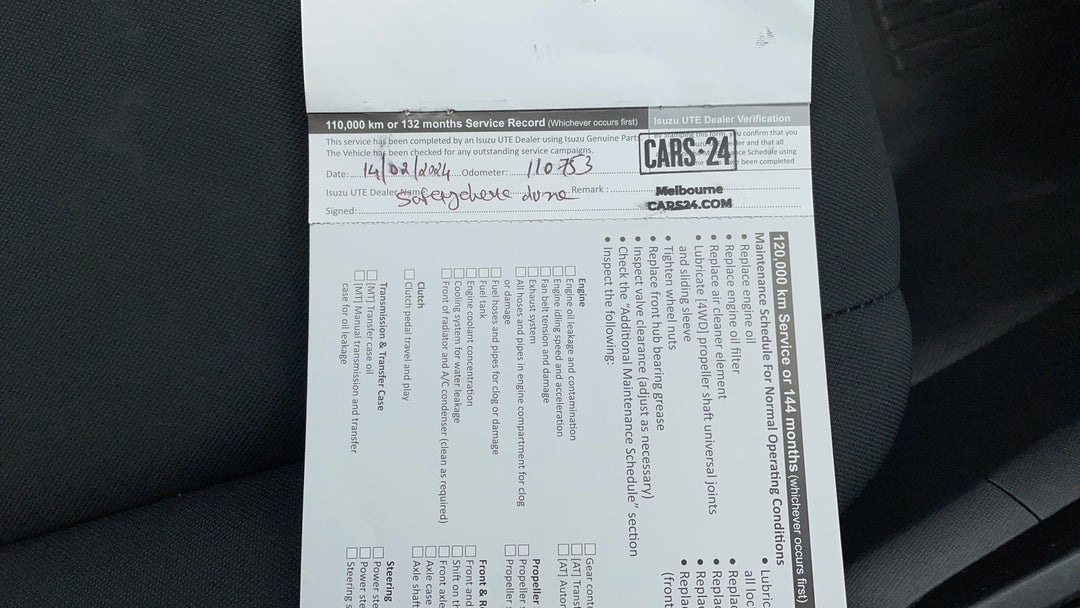 110,000 km or 132 months Service Record (Whichever occurs first)
Isuzu UTE Dealer Verification
This service has been completed by an Isuzu UTE Dealer using Isuzu Genuine Part
The Vehicle has been checked for any outstanding service campaigns.
Date: 14/02/2024 Odometer: 110753
Isuzu UTE Dealer Name Remark :
Signed:
confirm that you
and that all
Schedule using
been completed
CARS·24
Melbourne
CARS24.COM
120,000 km Service or 144 months (whichever occurs first)
Maintenance Schedule For Normal Operating Conditions
• Replace engine oil
• Replace engine oil filter
• Replace air cleaner element
• Lubricate [4WD] propeller shaft universal joints
and sliding sleeve
• Tighten wheel nuts
• Replace front hub bearing grease
• Inspect valve clearance (adjust as necessary)
• Check the "Additional Maintenance Schedule" section
• Inspect the following:
• Lubric
all loc
• Replac
• Replac
• Repla
• Replac
(front
Engine
Engine oil leakage and contamination
Engine idling speed and acceleration
Fan belt tension and damage
Exhaust system
All hoses and pipes in engine compartment for clog
or damage
Fuel hoses and pipes for clog or damage
Fuel tank
Engine coolant concentration
Cooling system for water leakage
Front of radiator and A/C condenser (clean as required)
Clutch
Clutch pedal travel and play
Transmission & Transfer Case
[MT] Transfer case oil
[MT] Manual transmission and transfer
case for oil leakage
Gear cont
[AT] Transf
[AT] Autor
Propeller
Propeller
Propeller
Front & Re
Front and
Shift on th
Front axle
Axle case
Axle shaft
Steering
Power ste
Power ste
Steering s